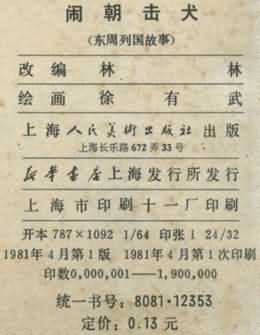 闹朝击犬
(东周列国故事)
改编 林 林
绘画 徐有武
上海人民美術出版社出版
上海长乐路672弄33号
新华書店上海发行所发行
上海市印刷十一厂印刷
开本787×1092 1/64 印张1 24/32
1981年4月第1版 1981年4月第1次印刷
印数0,000,001——1,900,000
统一书号：8081·12353
定价：0.13元